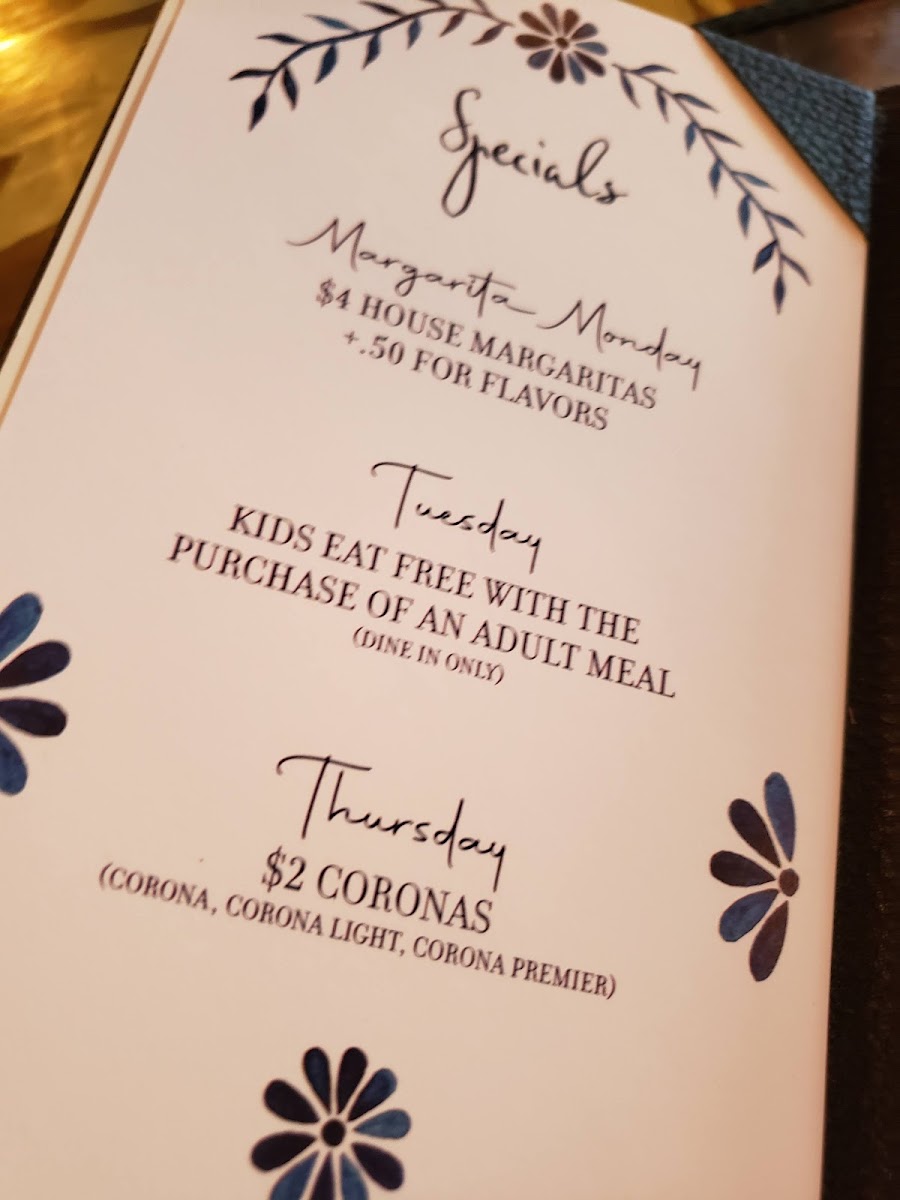 Specials
Margarita Monday
$4 HOUSE MARGARITAS
+.50 FOR FLAVORS
Tuesday
KIDS EAT FREE WITH THE
PURCHASE OF AN ADULT MEAL
(DINE IN ONLY)
Thursday
$2 CORONAS
(CORONA, CORONA LIGHT, CORONA PREMIER)